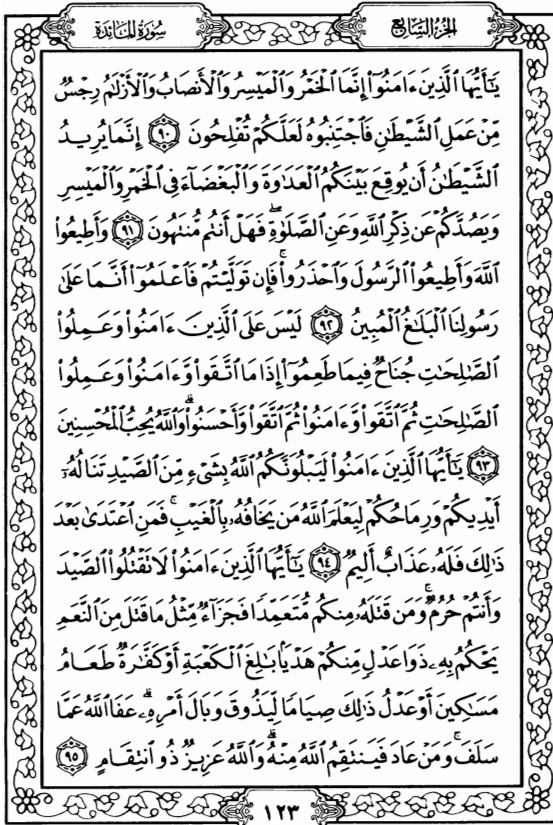 سُورَةُ المَائِدَةِ
الجُزْءُ السَّابِعُ
يَٰٓأَيُّهَا ٱلَّذِينَ ءَامَنُوٓا۟ إِنَّمَا ٱلْخَمْرُ وَٱلْمَيْسِرُ وَٱلْأَنصَابُ وَٱلْأَزْلَٰمُ رِجْسٌ
مِّنْ عَمَلِ ٱلشَّيْطَٰنِ فَٱجْتَنِبُوهُ لَعَلَّكُمْ تُفْلِحُونَ ٩٠ إِنَّمَا يُرِيدُ
ٱلشَّيْطَٰنُ أَن يُوقِعَ بَيْنَكُمُ ٱلْعَدَٰوَةَ وَٱلْبَغْضَآءَ فِى ٱلْخَمْرِ وَٱلْمَيْسِرِ
وَيَصُدَّكُمْ عَن ذِكْرِ ٱللَّهِ وَعَنِ ٱلصَّلَوٰةِۖ فَهَلْ أَنتُم مُّنتَهُونَ ٩١ وَأَطِيعُوا۟
ٱللَّهَ وَأَطِيعُوا۟ ٱلرَّسُولَ وَٱحْذَرُوا۟ۚ فَإِن تَوَلَّيْتُمْ فَٱعْلَمُوٓا۟ أَنَّمَا عَلَىٰ
رَسُولِنَا ٱلْبَلَٰغُ ٱلْمُبِينُ ٩٢ لَيْسَ عَلَى ٱلَّذِينَ ءَامَنُوا۟ وَعَمِلُوا۟
ٱلصَّٰلِحَٰتِ جُنَاحٌ فِيمَا طَعِمُوٓا۟ إِذَا مَا ٱتَّقَوا۟ وَّءَامَنُوا۟ وَعَمِلُوا۟
ٱلصَّٰلِحَٰتِ ثُمَّ ٱتَّقَوا۟ وَّءَامَنُوا۟ ثُمَّ ٱتَّقَوا۟ وَّأَحْسَنُوا۟ۗ وَٱللَّهُ يُحِبُّ ٱلْمُحْسِنِينَ
٩٣ يَٰٓأَيُّهَا ٱلَّذِينَ ءَامَنُوا۟ لَيَبْلُوَنَّكُمُ ٱللَّهُ بِشَىْءٍ مِّنَ ٱلصَّيْدِ تَنَالُهُۥٓ
أَيْدِيكُمْ وَرِمَاحُكُمْ لِيَعْلَمَ ٱللَّهُ مَن يَخَافُهُۥ بِٱلْغَيْبِۚ فَمَنِ ٱعْتَدَىٰ بَعْدَ
ذَٰلِكَ فَلَهُۥ عَذَابٌ أَلِيمٌ ٩٤ يَٰٓأَيُّهَا ٱلَّذِينَ ءَامَنُوا۟ لَا تَقْتُلُوا۟ ٱلصَّيْدَ
وَأَنتُمْ حُرُمٌۚ وَمَن قَتَلَهُۥ مِنكُم مُّتَعَمِّدًا فَجَزَآءٌ مِّثْلُ مَا قَتَلَ مِنَ ٱلنَّعَمِ
يَحْكُمُ بِهِۦ ذَوَا عَدْلٍ مِّنكُمْ هَدْيًۢا بَٰلِغَ ٱلْكَعْبَةِ أَوْ كَفَّٰرَةٌ طَعَامُ
مَسَٰكِينَ أَوْ عَدْلُ ذَٰلِكَ صِيَامًا لِّيَذُوقَ وَبَالَ أَمْرِهِۦۗ عَفَا ٱللَّهُ عَمَّا
سَلَفَۚ وَمَنْ عَادَ فَيَنتَقِمُ ٱللَّهُ مِنْهُۗ وَٱللَّهُ عَزِيزٌ ذُو ٱنتِقَامٍ ٩٥
١٢٣